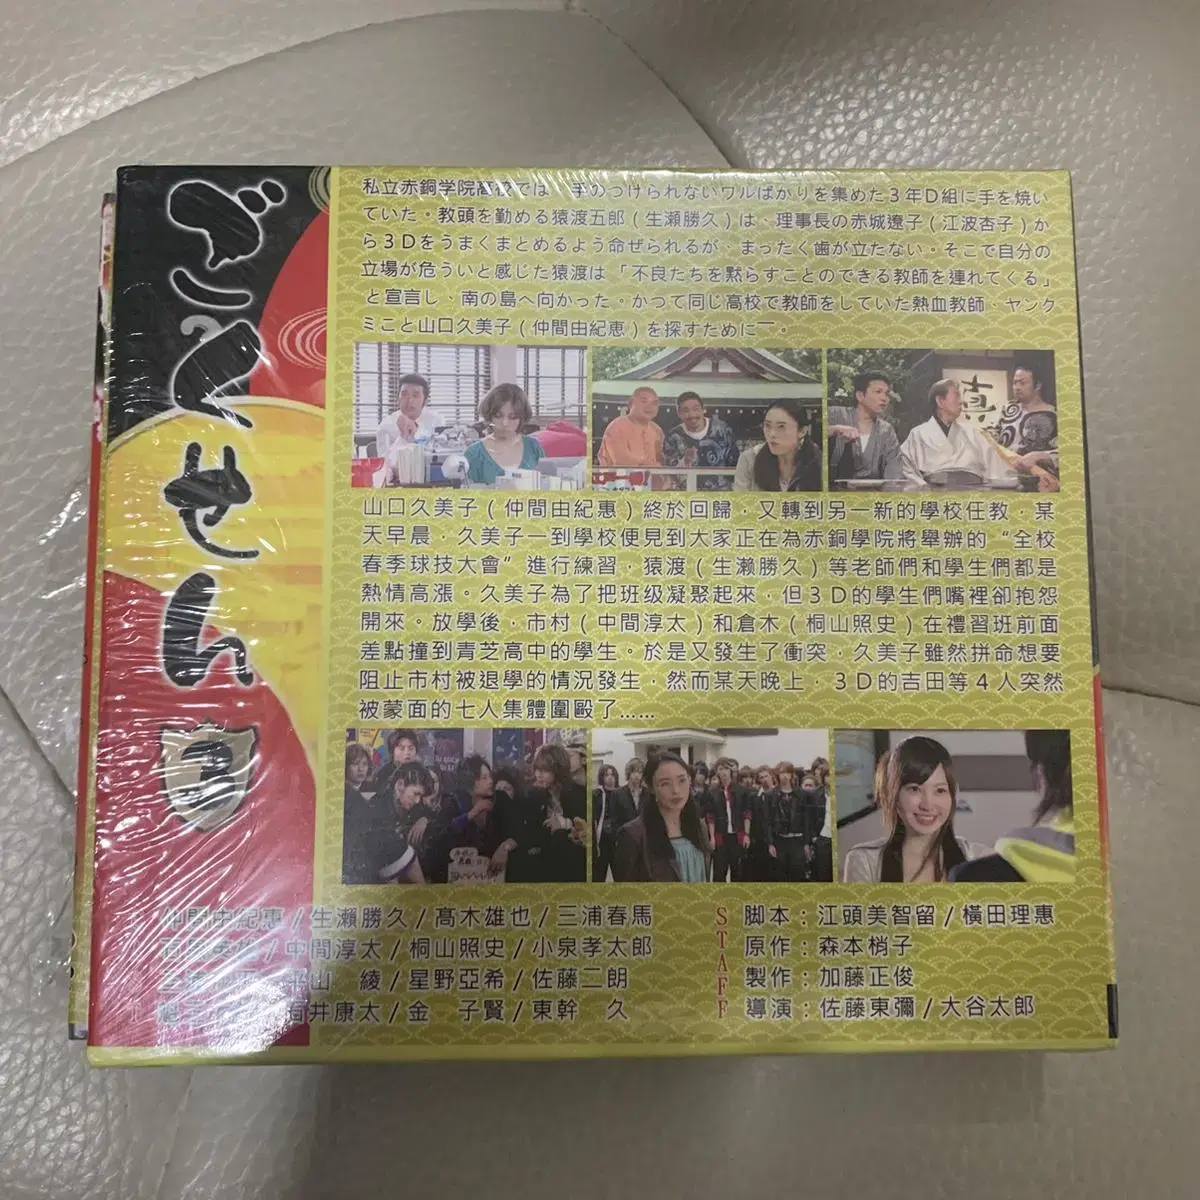 ごくせん
私立赤銅学院高校では、手のつけられないワルばかりを集めた3年D組に手を焼い
ていた。教頭を勤める猿渡五郎(生瀬勝久)は、理事長の赤城遼子(江波杏子)か
ら3Dをうまくまとめるよう命ぜられるが、まったく歯が立たない。そこで自分の
立場が危ういと感じた猿渡は「不良たちを黙らすことのできる教師を連れてくる」
と宣言し、南の島へ向かった。かつて同じ高校で教師をしていた熱血教師、ヤンク
ミこと山口久美子(仲間由紀恵)を探すために―。
真
山口久美子(仲間由紀惠)終於回歸,又轉到另一新的學校任教,某
天早晨,久美子一到學校便見到大家正在為赤銅學院將舉辦的“全校
春季球技大會”進行練習,猿渡(生瀨勝久)等老師們和學生們都是
熱情高漲。久美子為了把班级凝聚起來,但3D的學生們嘴裡卻抱怨
開來。放學後,市村(中間淳太)和倉木(桐山照史)在禮習班前面
差點撞到青芝高中的學生。於是又發生了衝突,久美子雖然拼命想要
阻止市村被退學的情況發生,然而某天晚上,3D的吉田等4人突然
被蒙面的七人集體圍毆了……
仲間由紀惠/生瀨勝久/髙木雄也/三浦春馬
中間淳太/桐山照史/小泉孝太郎
山 綾/星野亞希/佐藤二朗
井康太/金 子賢/東幹 久
STAFF
脚本:江頭美智留/橫田理惠
原作:森本梢子
製作:加藤正俊
導演:佐藤東彌/大谷太郎